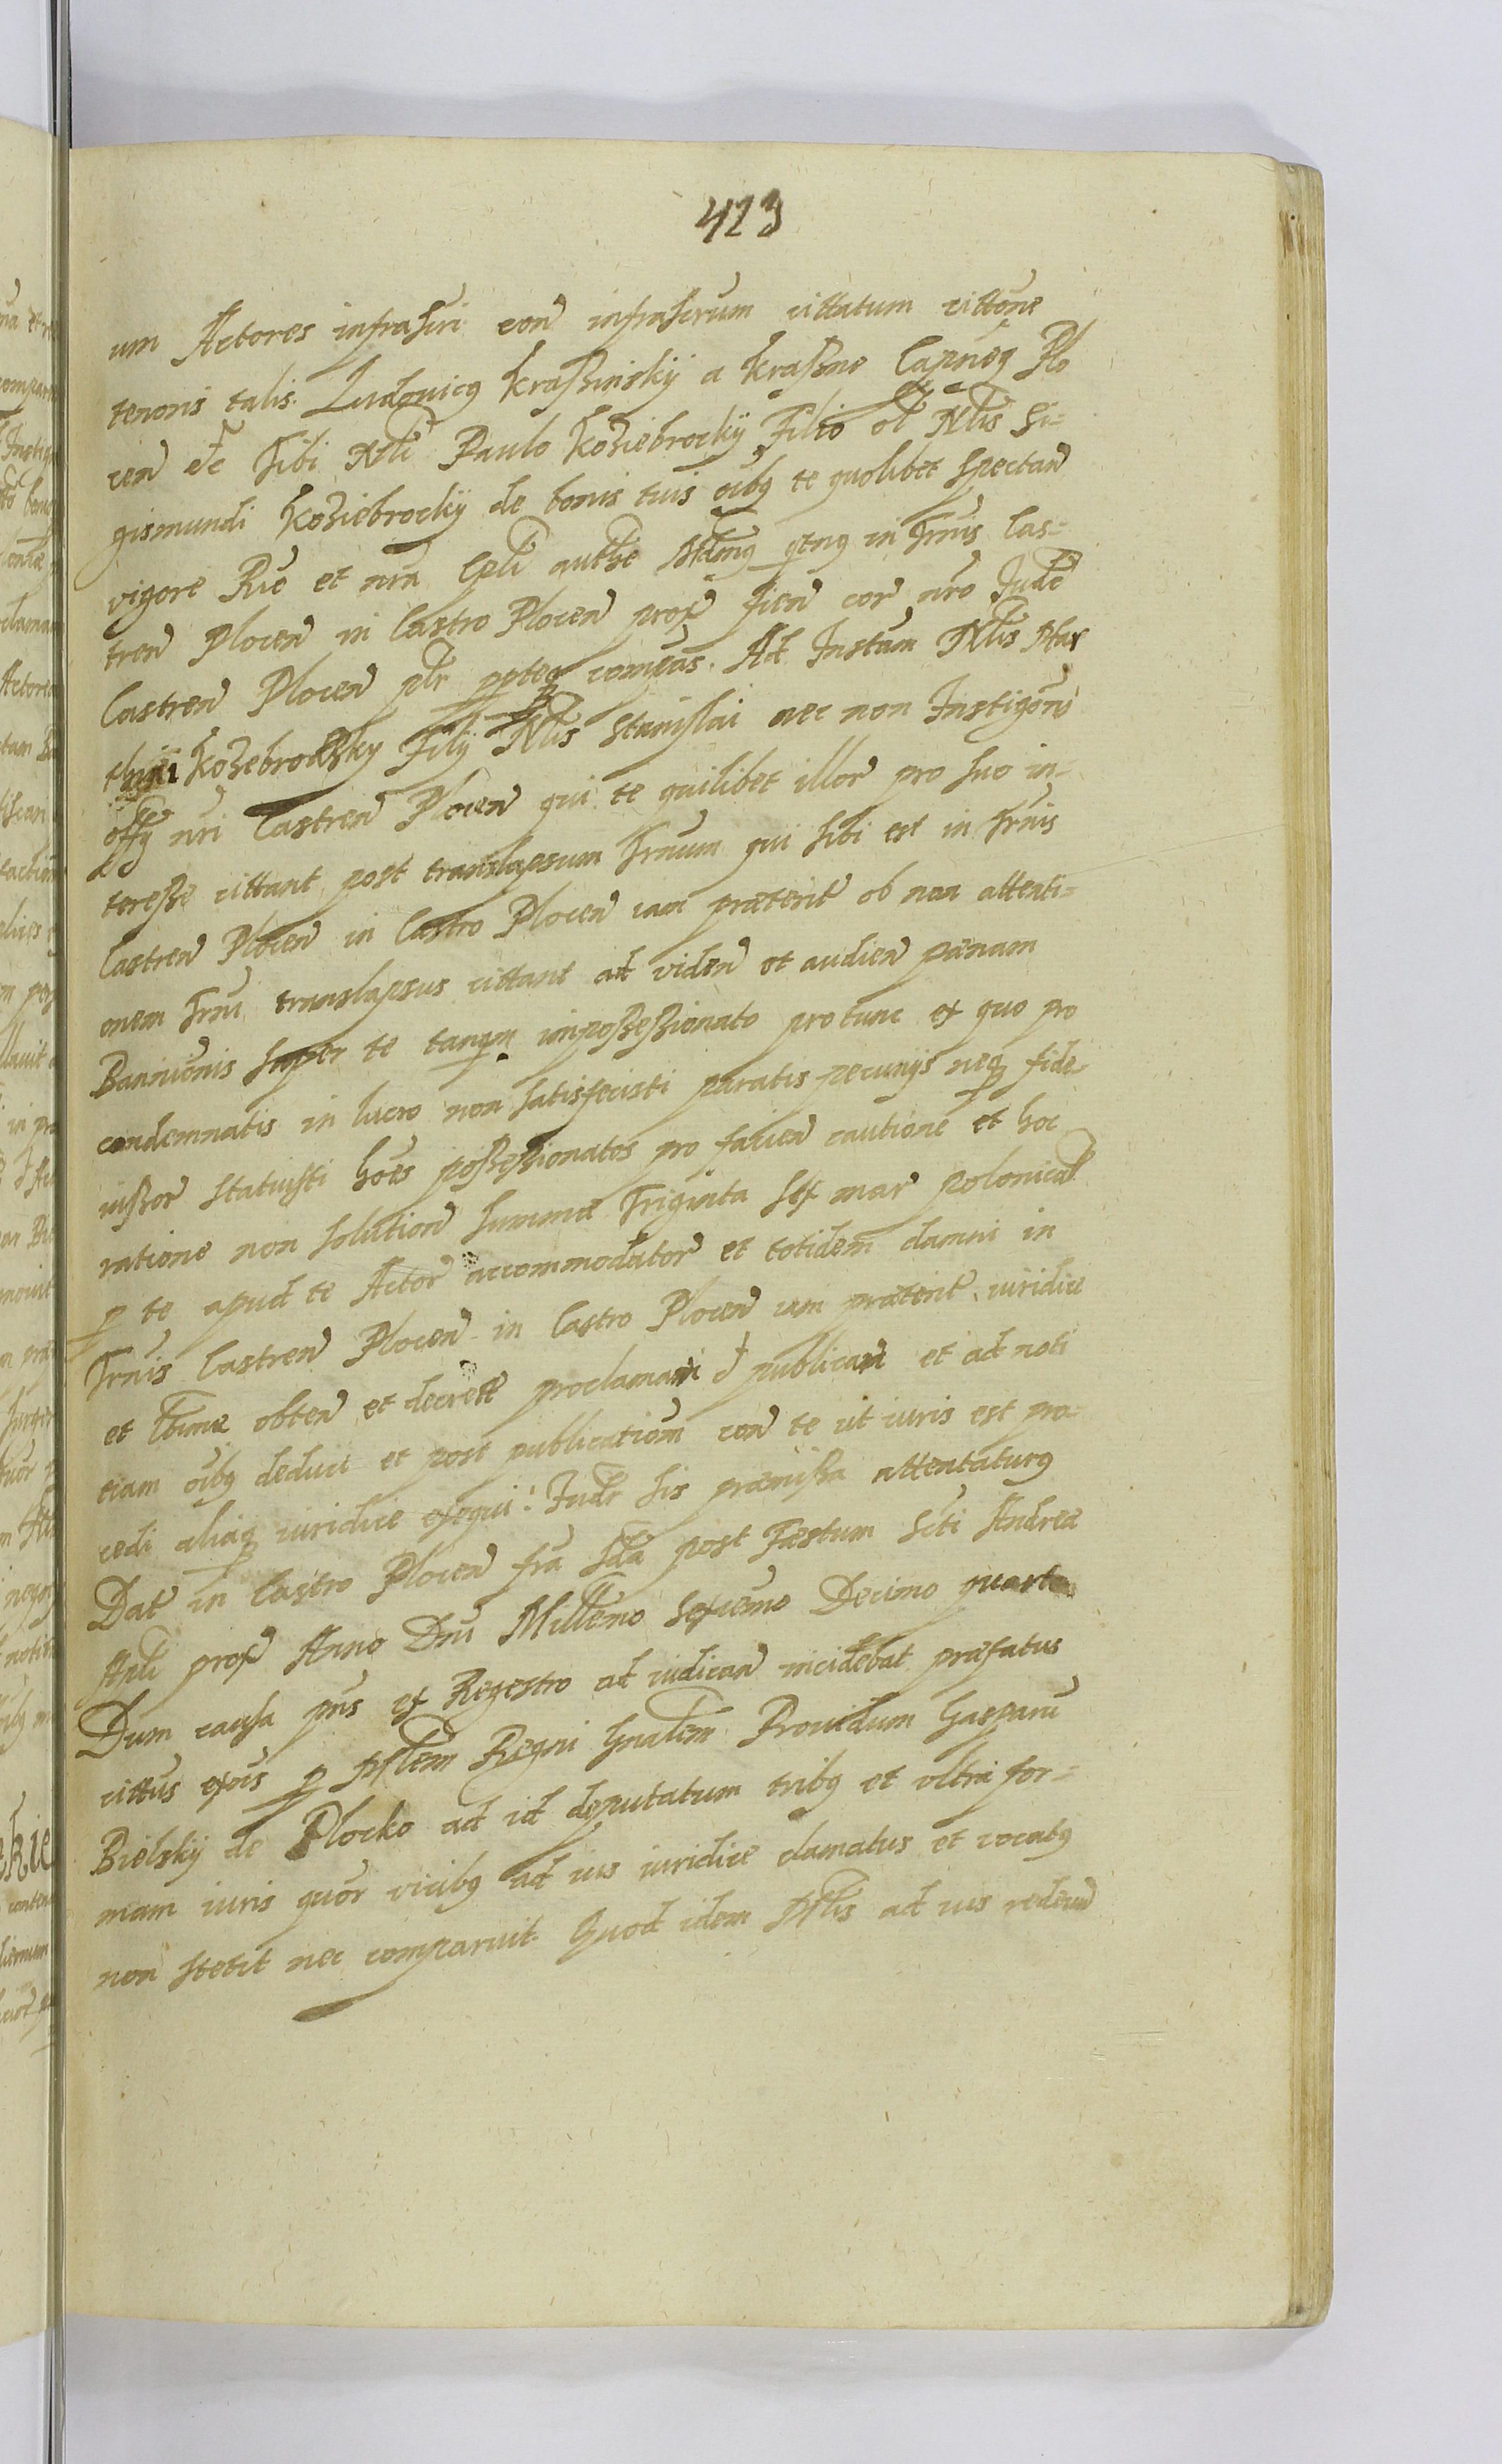 423
um Actores infrascri con infrascrum cittatum cittone
tenoris talis. Ludouicq Kraßinskÿ a Kraßne Capneq Plo
cen etc Tibi Nli Paulo Koziebrockÿ Filio ol Nlis Si-
gismundi Koziebrockÿ de bonis tuis oibq te quolibet spectan
vigore Rie et nra Cpli authte Mdmq qtnq in Trnis Cas-
tren Plocen in Castro Plocen prox fien cor nro Jude
Castren Plocen plr ppteq compas. Ad Instam Nlis Mar
Kozebrodsky Filÿ Nlis Stanislai nec non Instigoris
offÿ nri Castren Plocen qui te quilibet illor pro suo in-
tereße cittant post translapsum Trnum qui tibi est in Trnis
Castren Plocen in Castro Plocen iam præterit ob non attenti-
onem Trni translapsus cittant ad viden et audien pænam
Bannicionis super te tanqm impoßeßionato pro tunc ex quo pro
condemnatis in lucro non satisfecisti paratis pecunÿs neq fide
iußor statuisti hoes poßeßionatos pro facien cautione et hoc
ratione non solution summæ Triginta sex mar polonical
p te apud te Actor accommodator et totidem damni in
Trnis Castren Plocen in Castro Plocen iam præterit iuridice
et obten et decrett proclamari et publicari et ad noti
ciam oibq deduci et post publicationem con te ut iuris est pro-
cedi aliaq iuridice exequi: Judr sis præmissa attentaturq
Dat in Castro Plocen fra 2da post Fæstum Scti Andreæ
Apli prox Anno Dni Millemo Sexcmo Decimo quarto
Dum causa pns ex Regestro ad iudican incidebat præfatus
cittus exois p Mlem Regni Gnalem Prouidum Gasparu
Bielskÿ de Plocko ad id deputatum tribq et ultra for-
mam iuris quor vicibq ad ius iuridice clamatus et vocatq
non stetit nec comparuit. Quod idem Mlis ad ius redeun